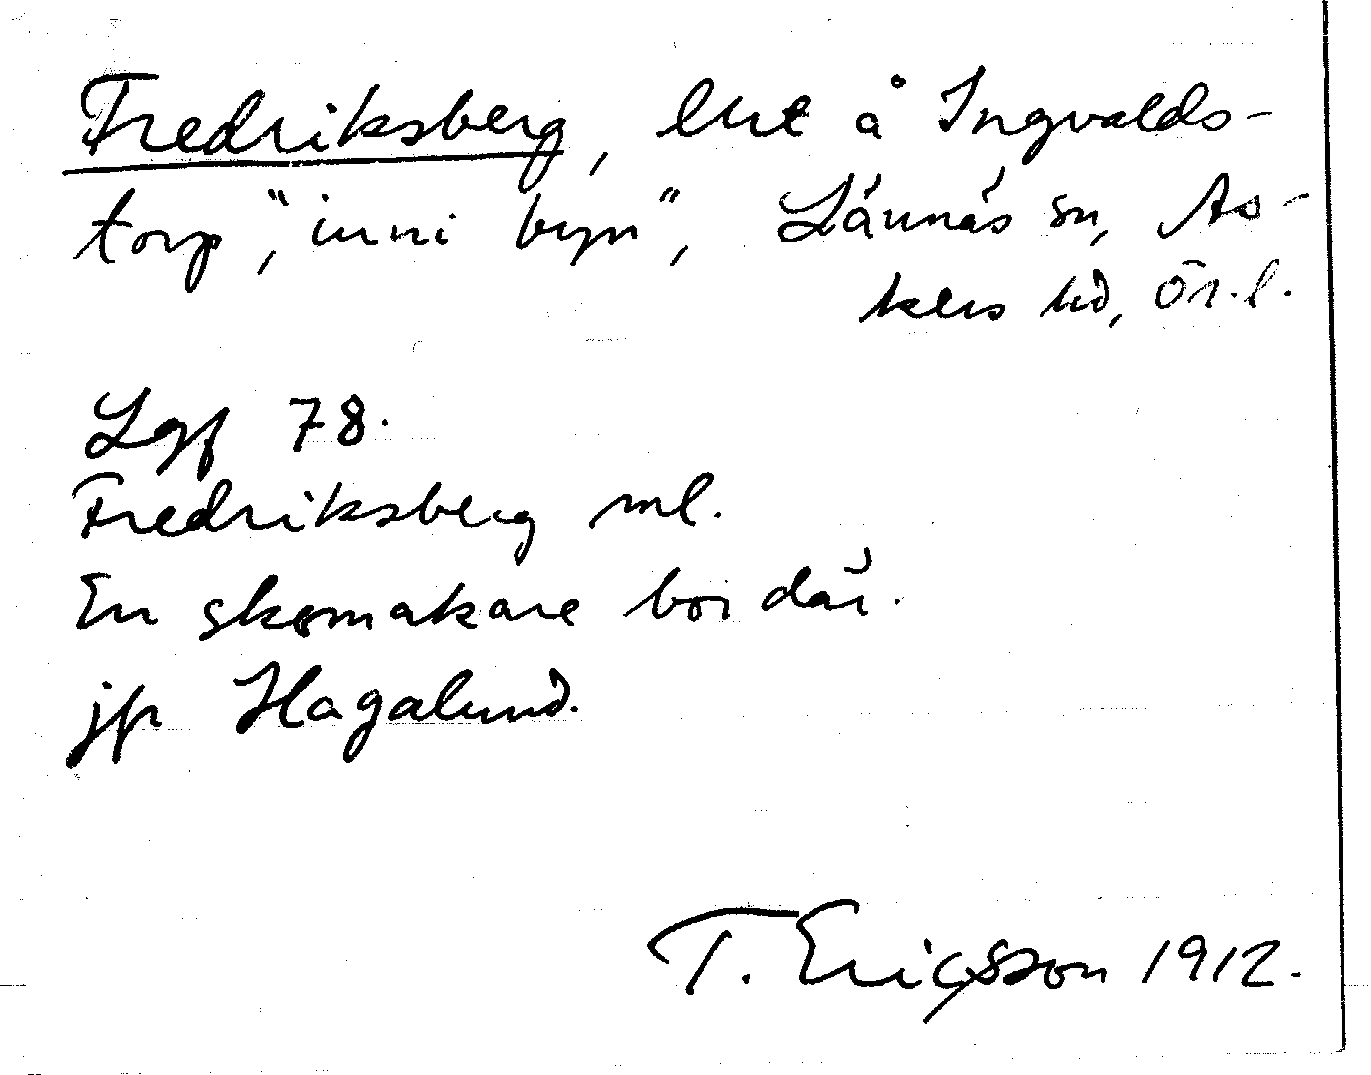 Fredriksberg, lht å Ingvalds-
torp, "inni byn", Lännäs sn, As-
kers hd, Ör. l.
Lgf 78.
Fredriksberg ml.
En skomakare bor där.
jfr Hagalund.
T. Ericsson 1912.